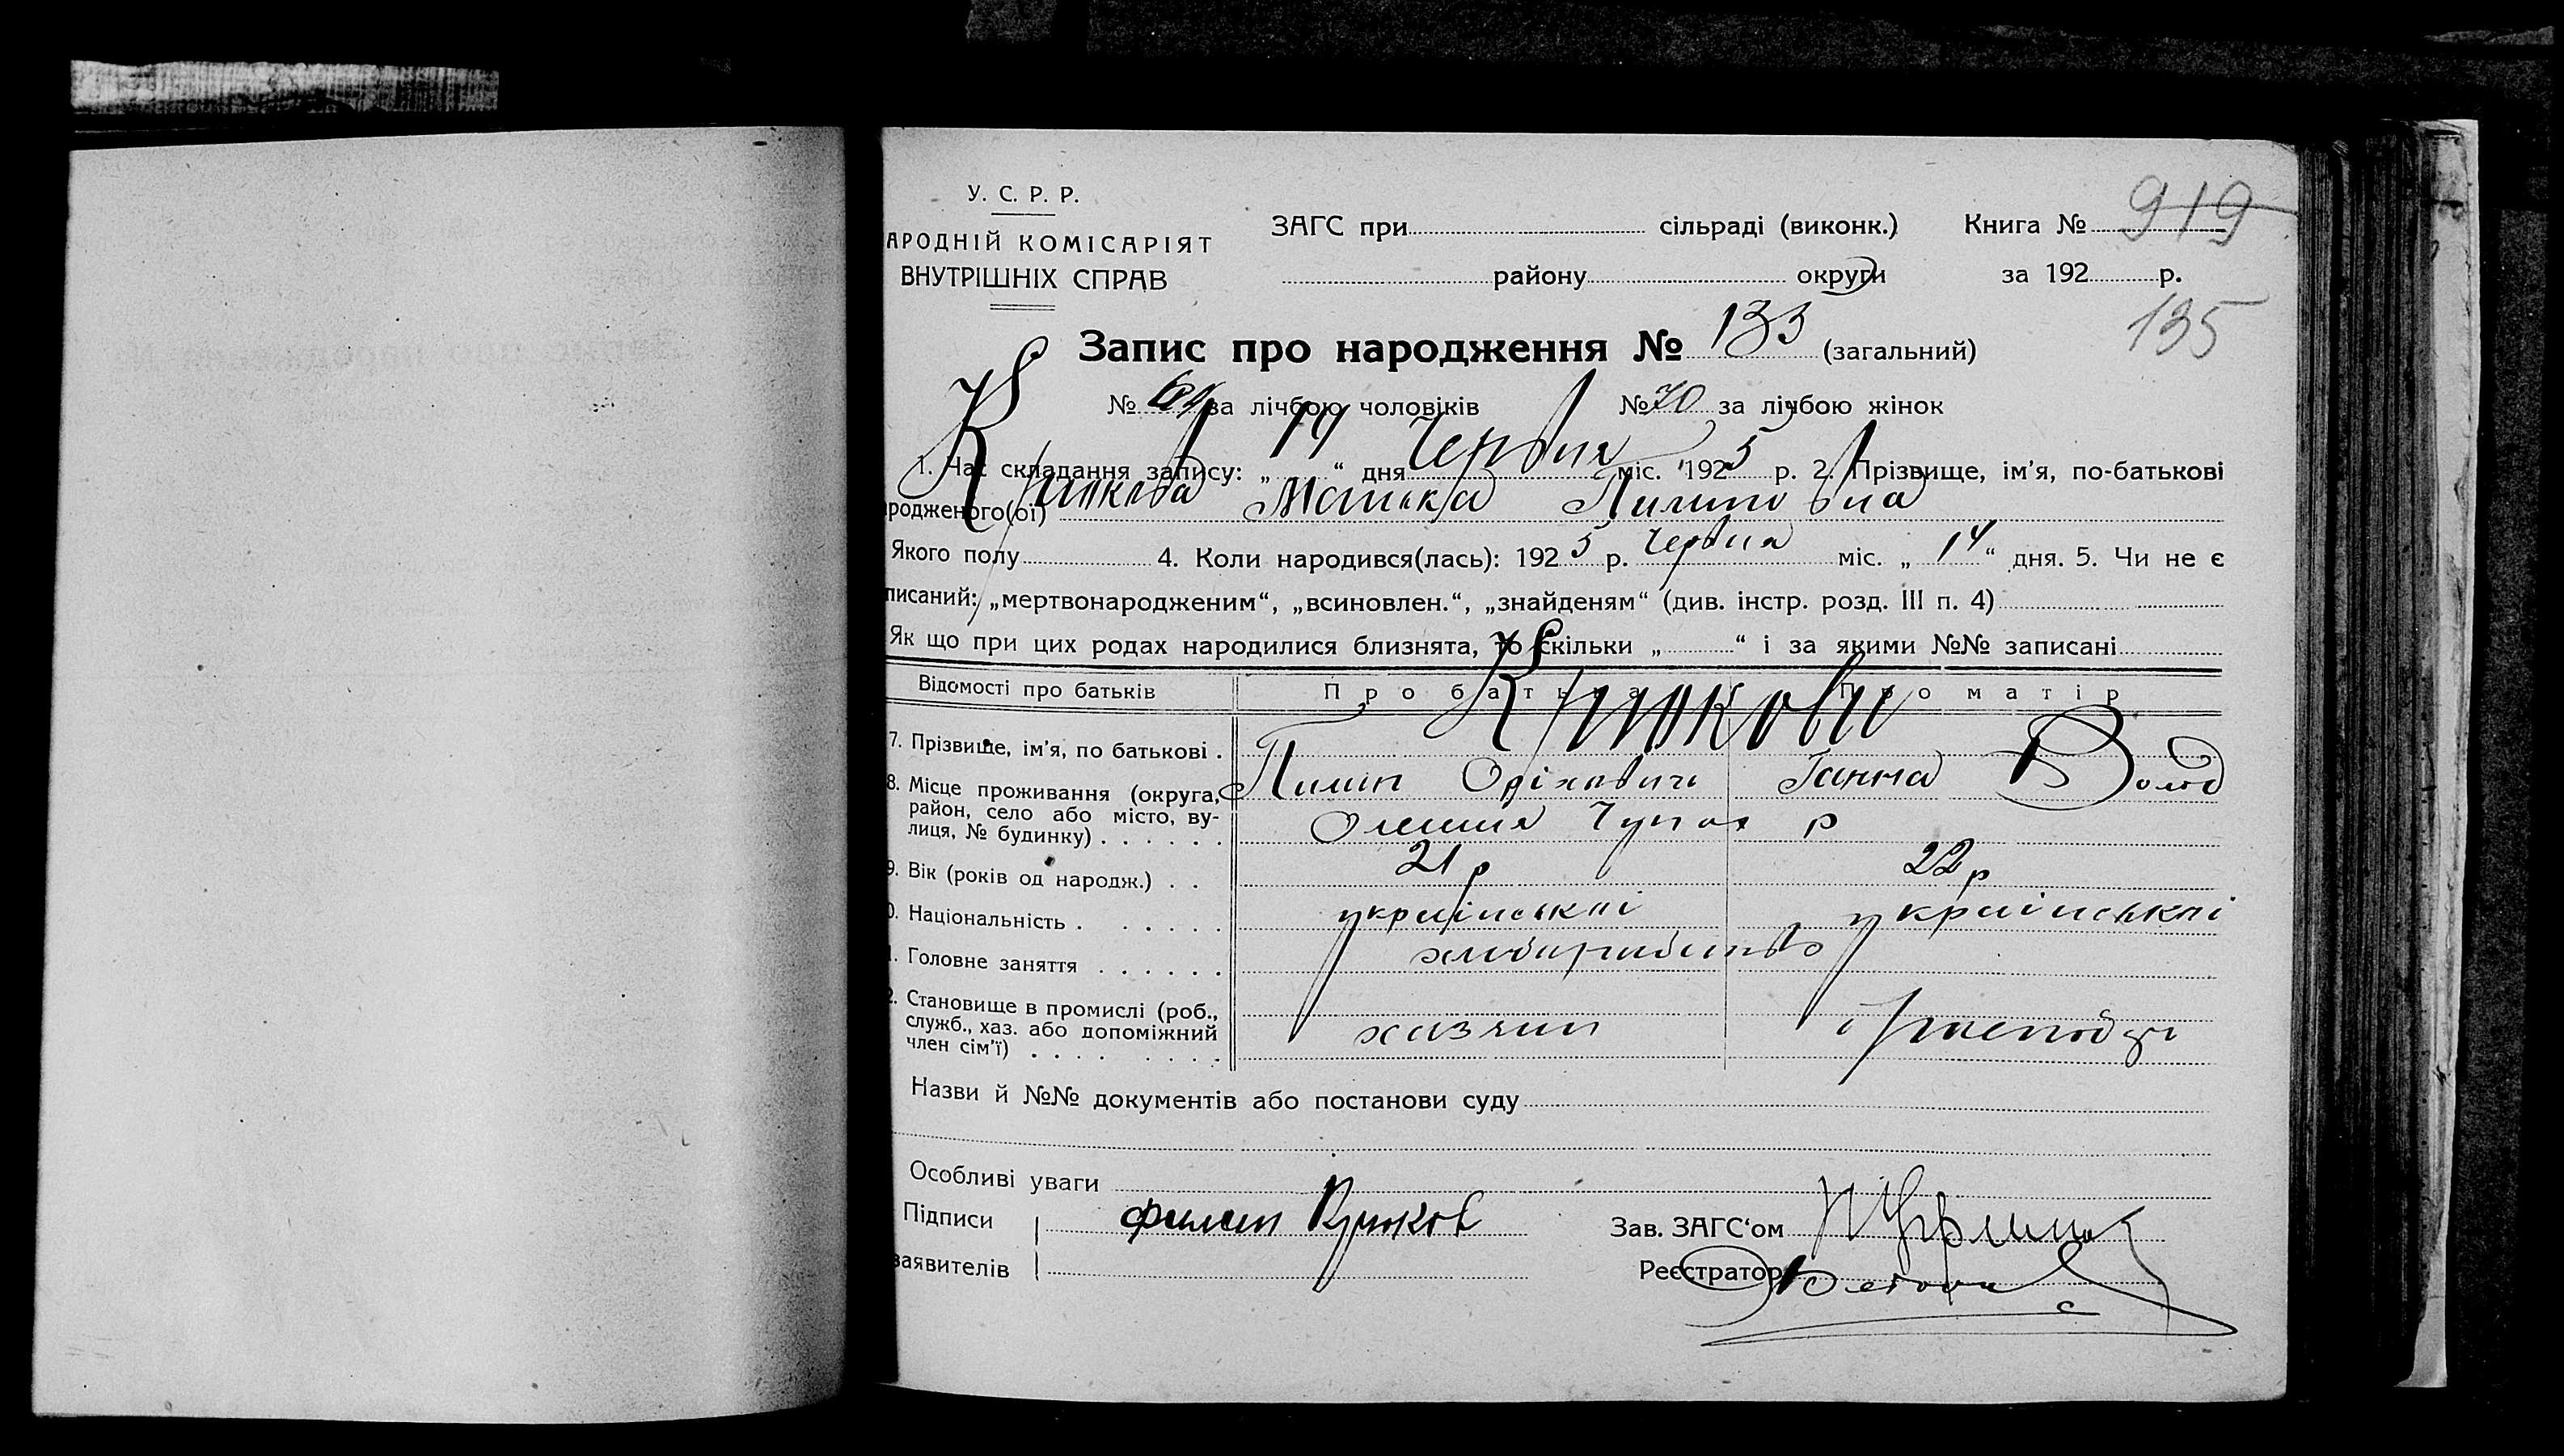 У. С. Р. Р.
АРОДНІЙ КОМІСАРІЯТ
ВНУТРІШНІХ СПРАВ
ЗАГС при сільраді (виконк.) Книга № 919
району округи за 192 р.
135
Запис про народження № 133 (загальний)
№ за лічбою чоловіків № 70 за лічбою жінок
1. Час складання запису: „ 19 “ дня Червня міс. 1925 р. 2. Прізвище, ім'я, по-батькові
родженого(ої) Крюкова Пилиповна
Якого полу 4. Коли народився(лась): 1925 р. Червня міс. „ 14 “ дня. 5. Чи не є
писаний: „мертвонародженим“, „всиновлен.“, „знайденям“ (див. інстр. розд. III п. 4)
Як що при цих родах народилися близнята, то скільки „ “ і за якими №№ записані
Відомості про батьків Про батька Про матір
7. Прізвище, ім'я, по батькові . Крюкови
Пилип Ганна Волод
8. Місце проживання (округа, район, село або місто, вулиця, № будинку) . . . . . . р
9. Вік (років од народж.) . . 21 р 22 р
0. Національність . . . . . . українські українські
1. Головне заняття . . . . . . хліборобство
2. Становище в промислі (роб., служб., хаз. або допоміжний член сім'ї) . . . . . . . . хазяин господар
Назви й №№ документів або постанови суду
Особливі уваги
Підписи Филип Крюков Зав. ЗАГС'ом
заявителів Реєстратор